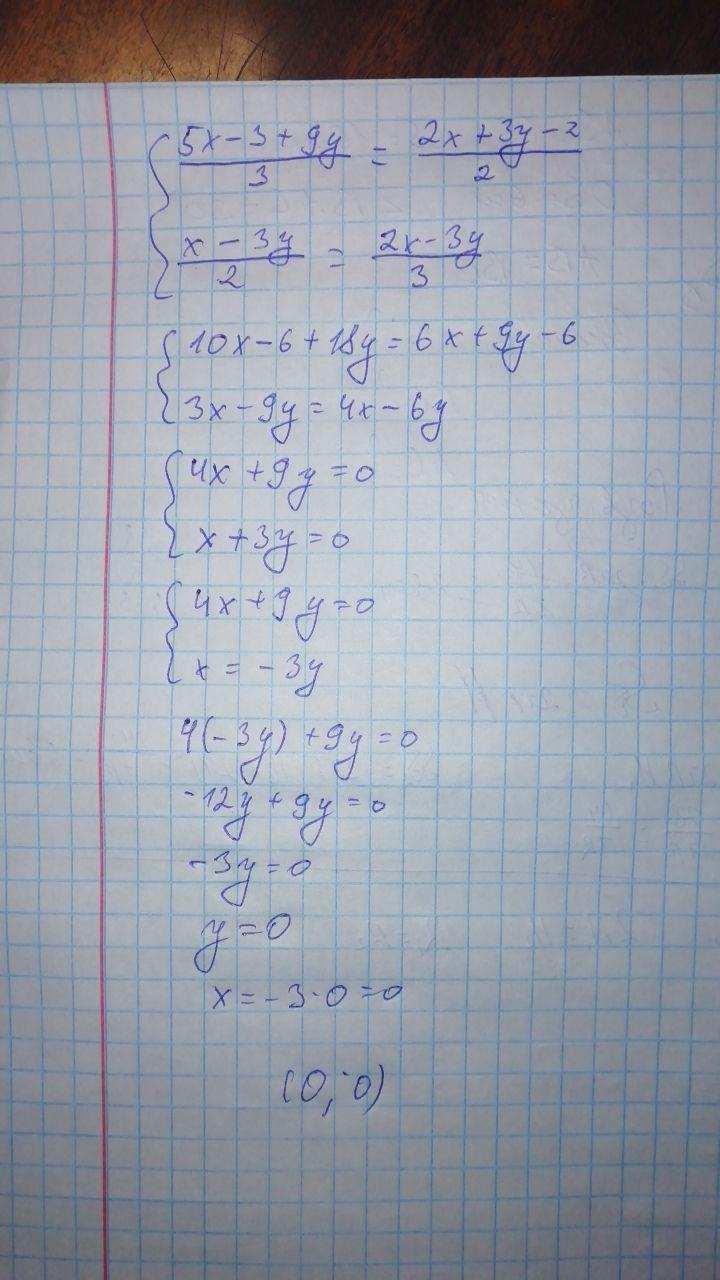 5x-3+9y/3 = 2x+3y-2/2
x-3y/2 = 2x-3y/3
10x-6+18y=6x+9y-6
3x-9y=4x-6y
4x+9y=0
x+3y=0
4x+9y=0
x=-3y
4(-3y)+9y=0
-12y+9y=0
-3y=0
y=0
x=-3·0=0
(0; 0)